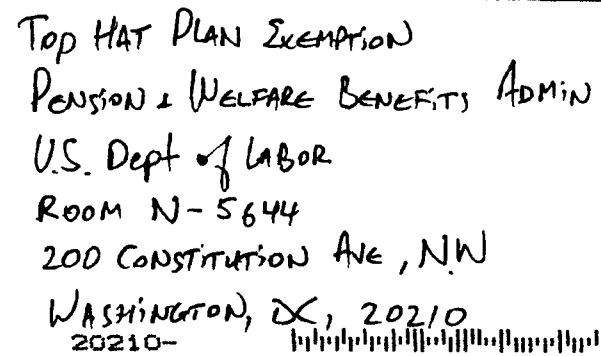 Top HAT PLAN EXEMPTiON
PENSiON & WELFARE BENEFiTS ADMiN
U.S. Dept of LABOR
ROOM N-5644
200 CONSTiTUTiON AVE, N.W
WASHiNGTON, DC, 20210
20210-